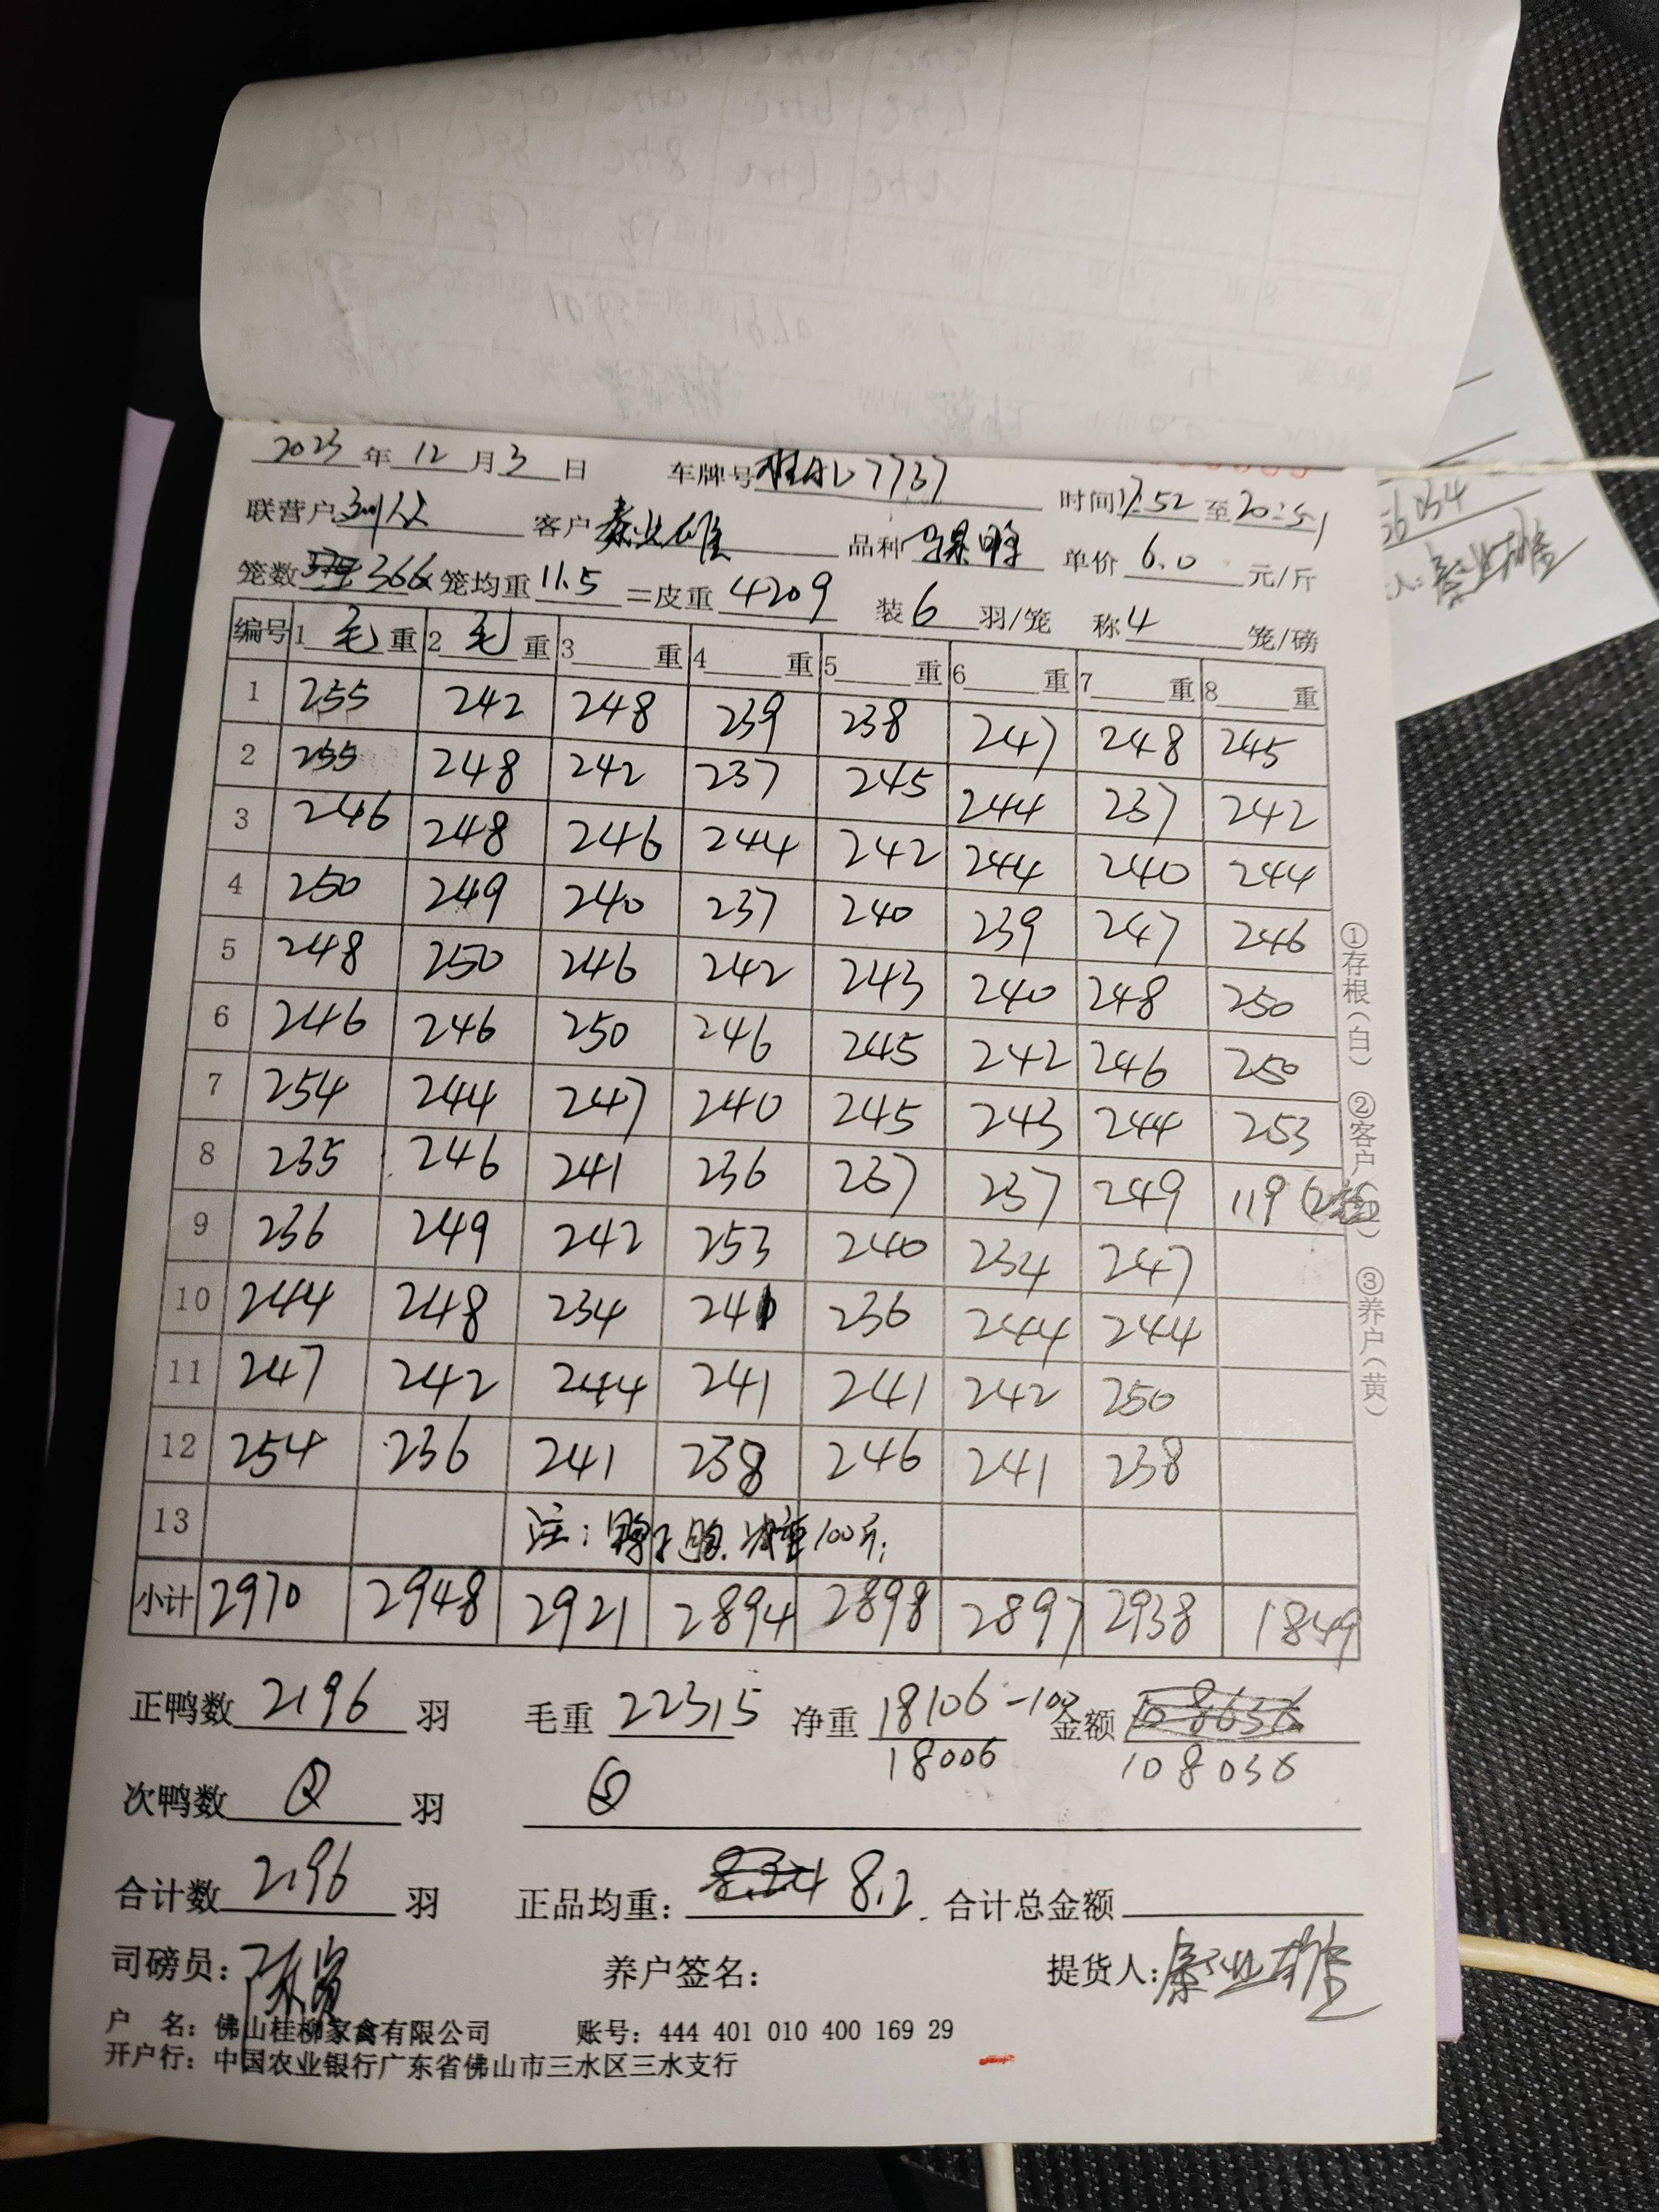 2023年12月3日 车牌号 7737
时间17:52至20:51
联营户 客户秦业雄 品种 单价6.0元/斤
笼数366×笼均重11.5=皮重4209 装6羽/笼 称4笼/磅
编号 1毛重 2毛重 3重 4重 5重 6重 7重 8重
1 255 242 248 239 238 247 248 245
2 255 248 242 237 245 244 237 242
3 246 248 246 244 242 244 240 244
4 250 249 240 237 240 239 247 246
5 248 250 246 242 243 240 248 250
6 246 246 250 246 245 242 246 250
7 254 244 247 240 245 243 244 253
8 235 246 241 236 237 237 249 119
9 236 249 242 253 240 234 247
10 244 248 234 241 236 244 244
11 247 242 244 241 241 242 250
12 254 236 241 238 246 241 238
13 注: 100斤
小计 2970 2948 2921 2894 2898 2897 2938 1849
正鸭数2196羽 毛重22315 净重18106-100 金额108636
18006 108036
次鸭数 羽
合计数2196羽 正品均重: 8.2 合计总金额
司磅员: 养户签名: 提货人:秦业雄
户 名: 佛山桂柳家禽有限公司 账号: 444 401 010 400 169 29
开户行: 中国农业银行广东省佛山市三水区三水支行
①存根(白) ②客户 ③养户(黄)